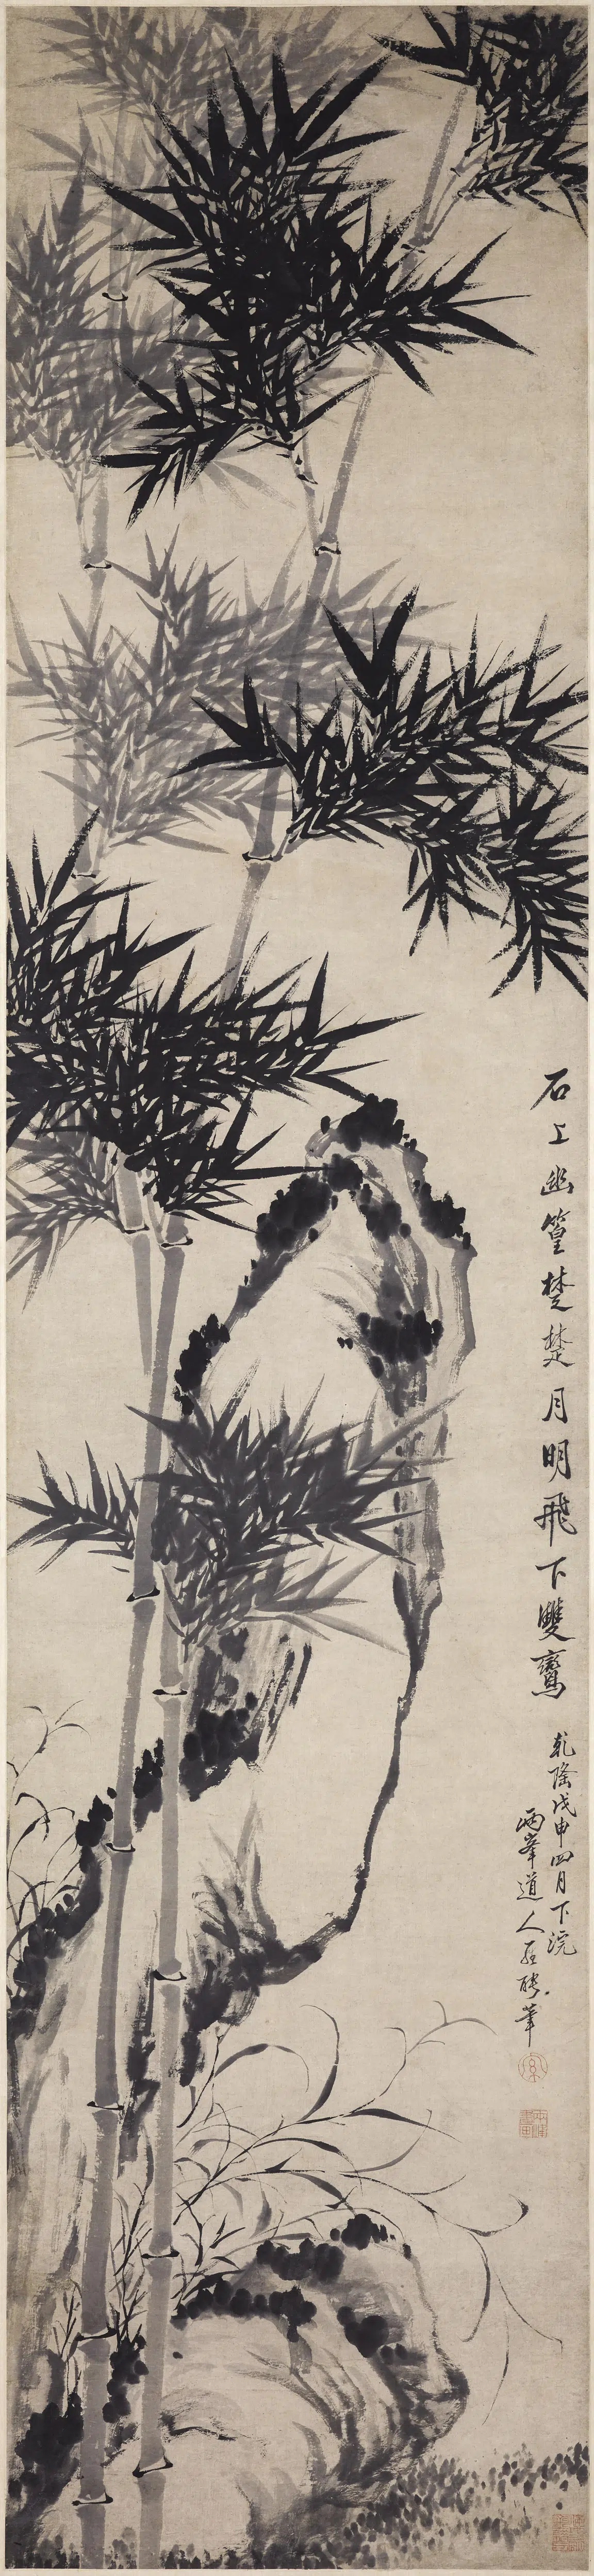 石上幽篁楚楚月明飛下雙鸞
乾隆戊申四月下浣
兩峯道人羅聘筆